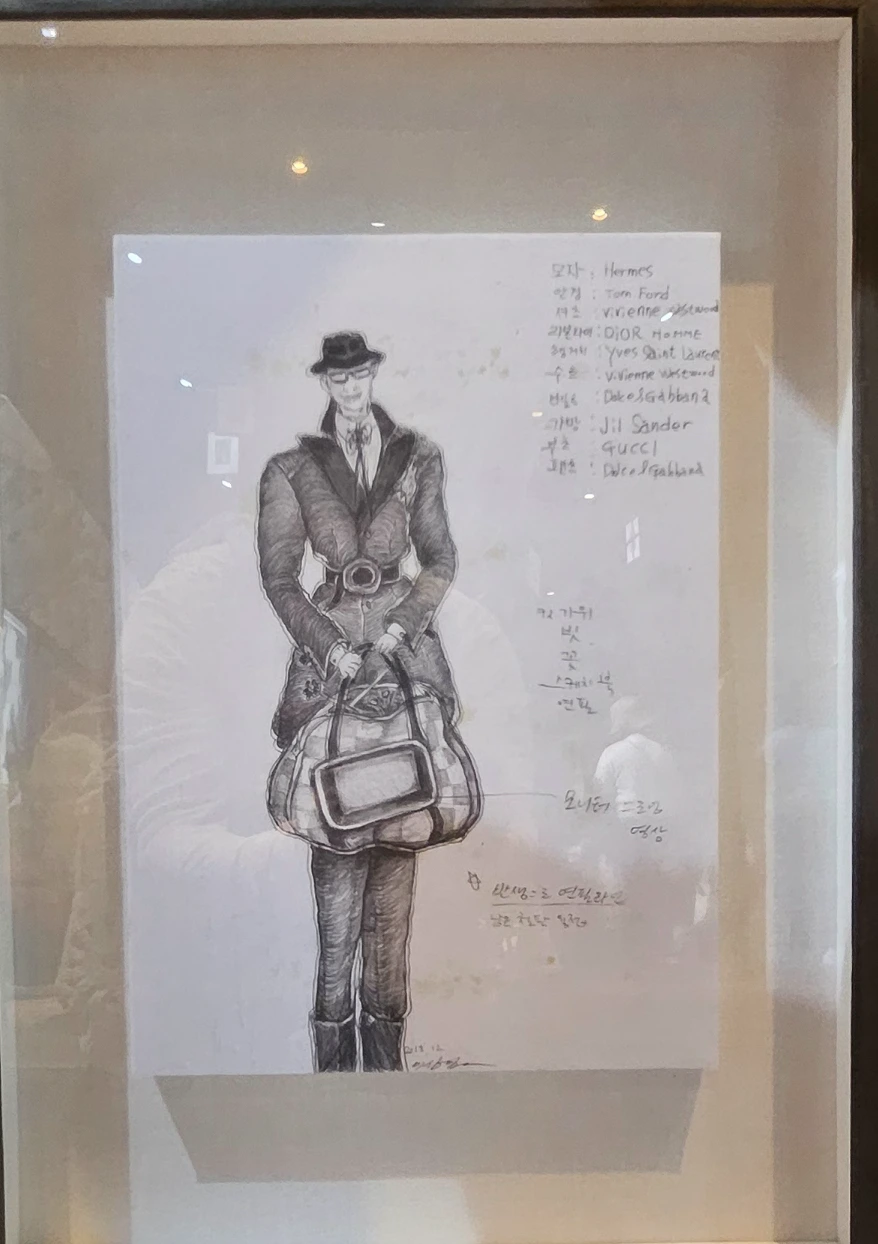 모자 : Hermes
안경 : Tom Ford
셔츠 : vivienne westwood
리본타이 : DiOR HOMME
행거칩 : Yves Saint Laurent
수트 : vivienne westwood
벨트 : Dolce&Gabbana
가방 : Jil Sander
부츠 : GUCCI
팬츠 : Dolce&Gabbana
가위
빗
꽃
스케치북
연필
모니터 드로잉
영상
연필라인
2013. 12